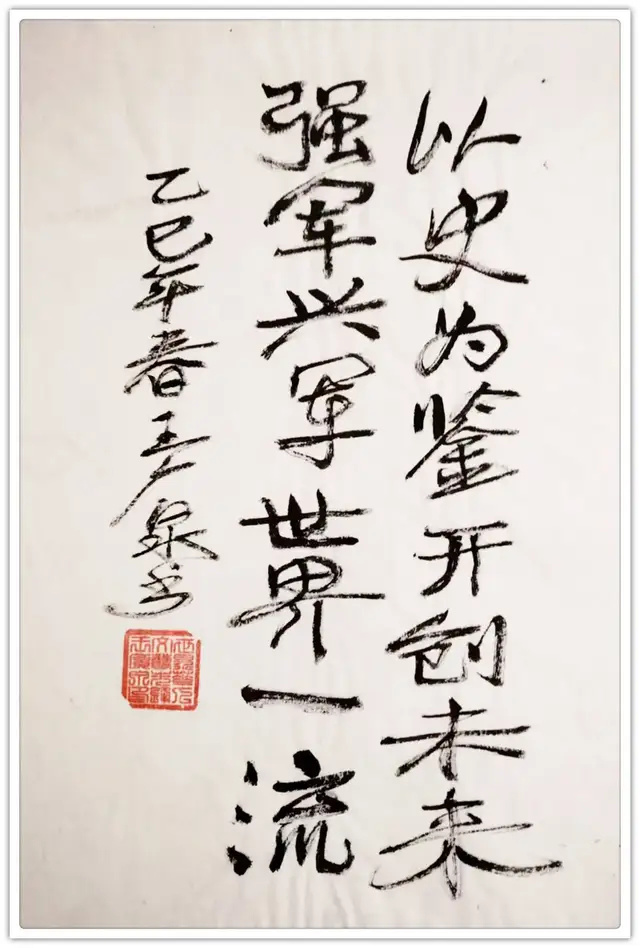 以史为鉴开创未来
强军兴军世界一流
乙巳年春王广泉书